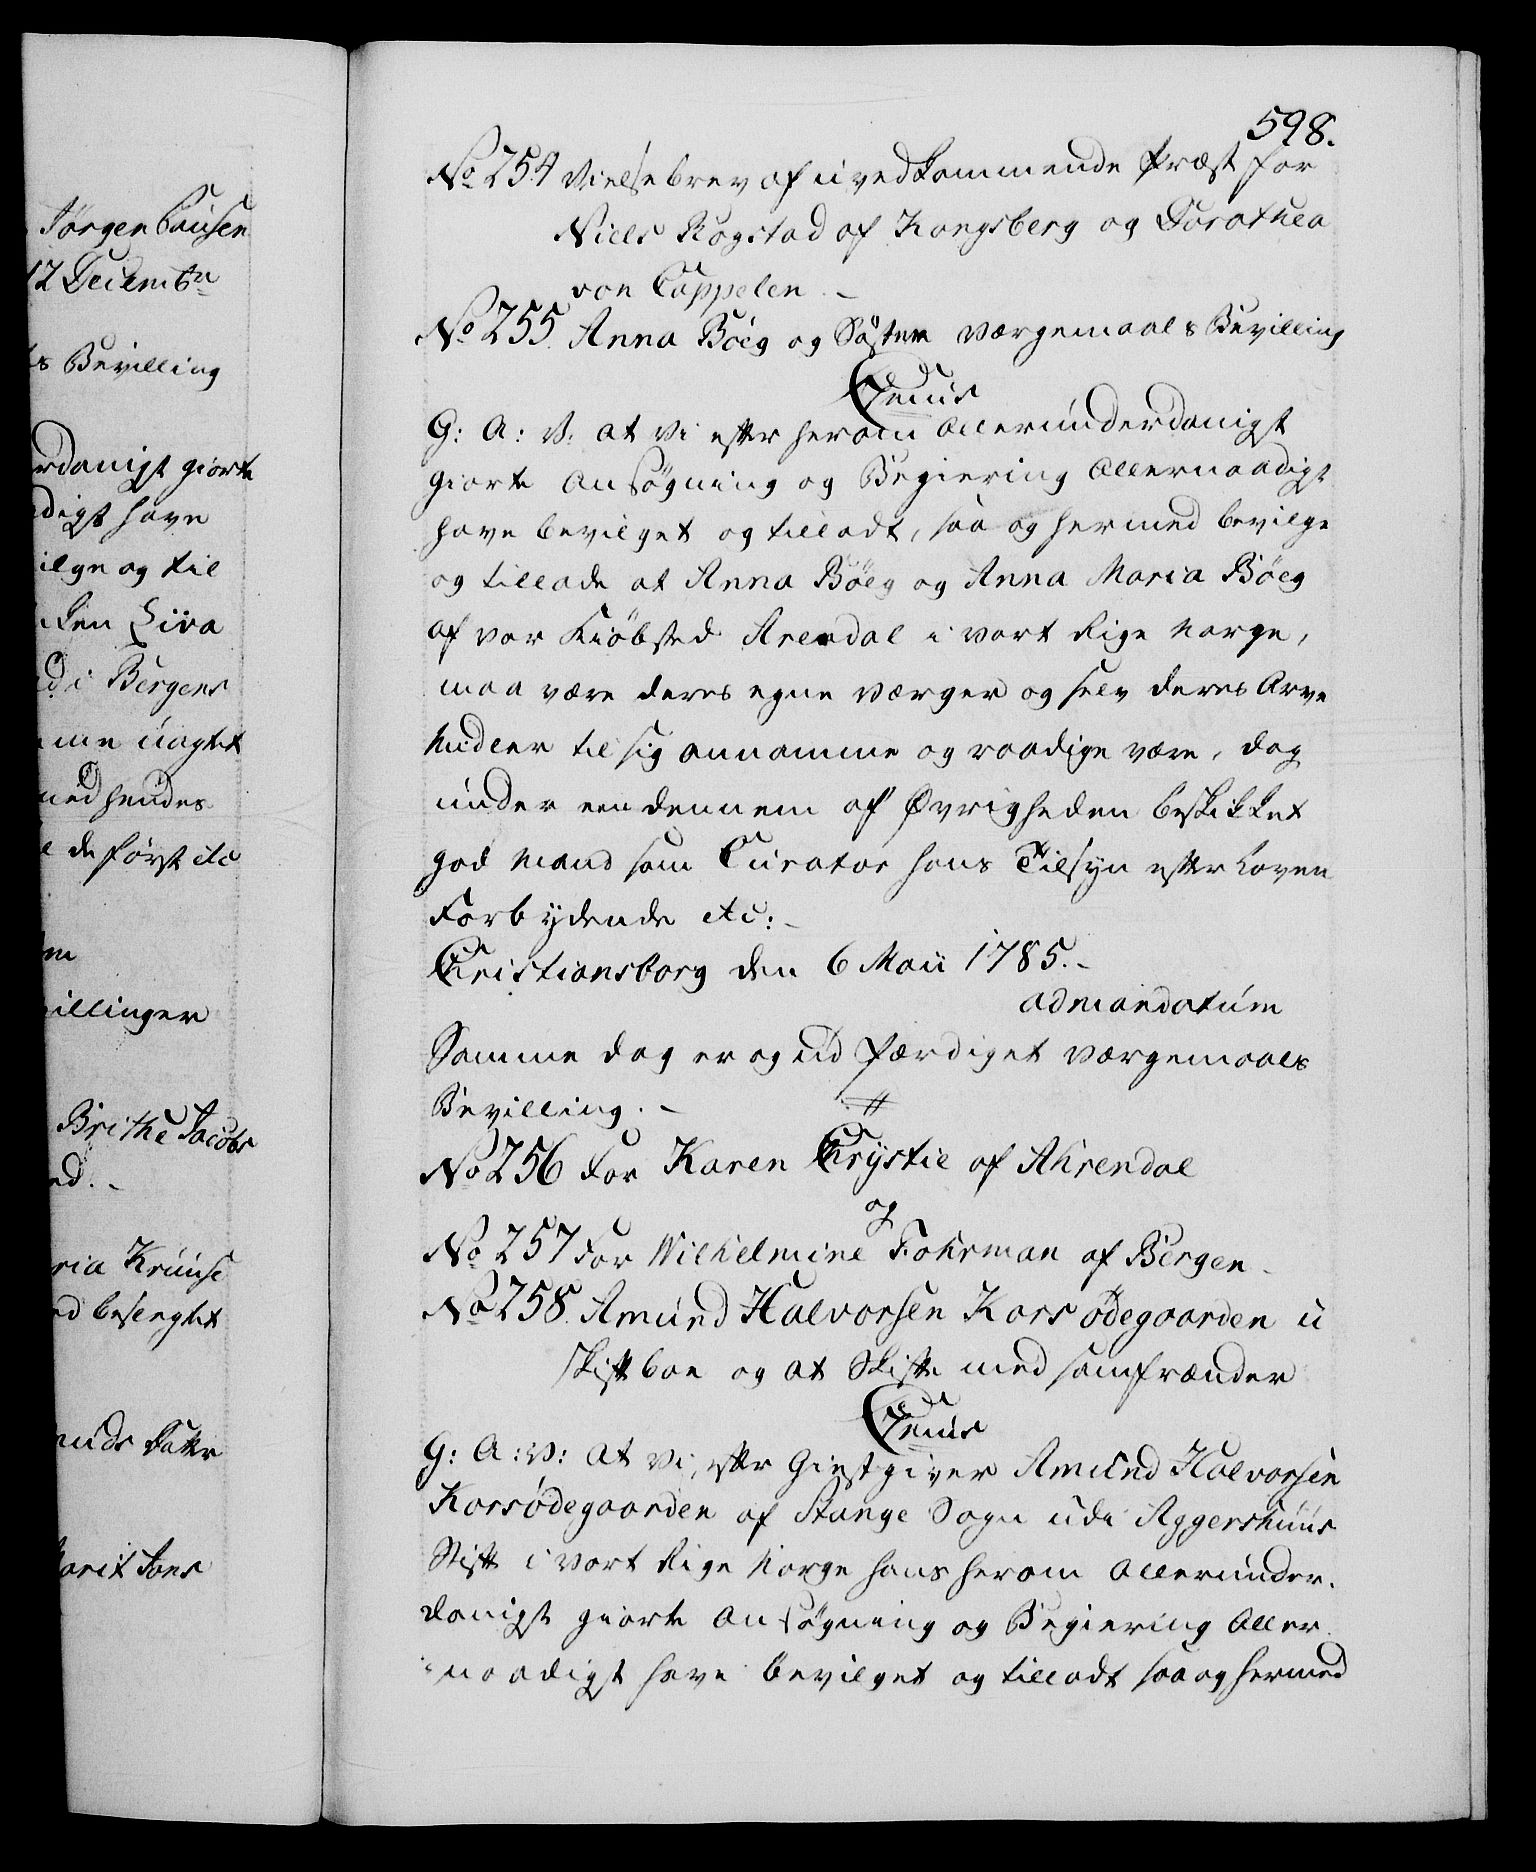 Jörgen Causen
12 Decembr
s Bevilling
rdanigst giorte
digst have
ilge og til
ken Siva
d i Bergens
me uagtet
med hendes
de først etc
illinger
Brithe Jacobs
ed.
ria Kruuse
ed besvogret
Marit Jons
598.
No 254 Vielsebrev af uvedkommende Præst for
Niels Rogstad af Kongsberg og Dorothea
von Cappelen. -
No 255. Anna Böeg og Söster Værgemaals Bevilling
Genus
G: A: V: at Vi efter herom Allerunderdanigst
giorte Ansøgning og Begiering Allernaadigst
have bevilget og tilladt, saa og hermed bevilge
og tillade at Anna Böeg og Anna Maria Böeg
af vor Kiöbsted Arendal i vort Rige Norge,
maa være deres egne Værger og selv deres Arve
Midler til sig annamme og raadige være, dog
under een dennem af Øvrigheden beskikket
god Mand som Curator hans Tilsyn efter Loven
Forbydende etc: -
Christiansborg den 6 Maii 1785. -
ad mandatum
Samme dag er og udfærdiget Værgemaals
Bevilling. -
No 256 For Karen Chrystie af Ahrendal
og
No 257 For Wilhelmine Fohrman af Bergen -
No 258. Amund Halvorsen Korsødegaarden u
skift boe og at Skifte med samfrænder
Genus
G: A: V: at Vi, efter Giestgiver Amund Halvorsen
Korsødegaarden af Stange Sogn udi Aggershuus
Stift i vort Rige Norge hans herom Allerunder-
danigst giorte Ansøgning og Begiering Aller-
naadigst have bevilget og tilladt saa og hermed